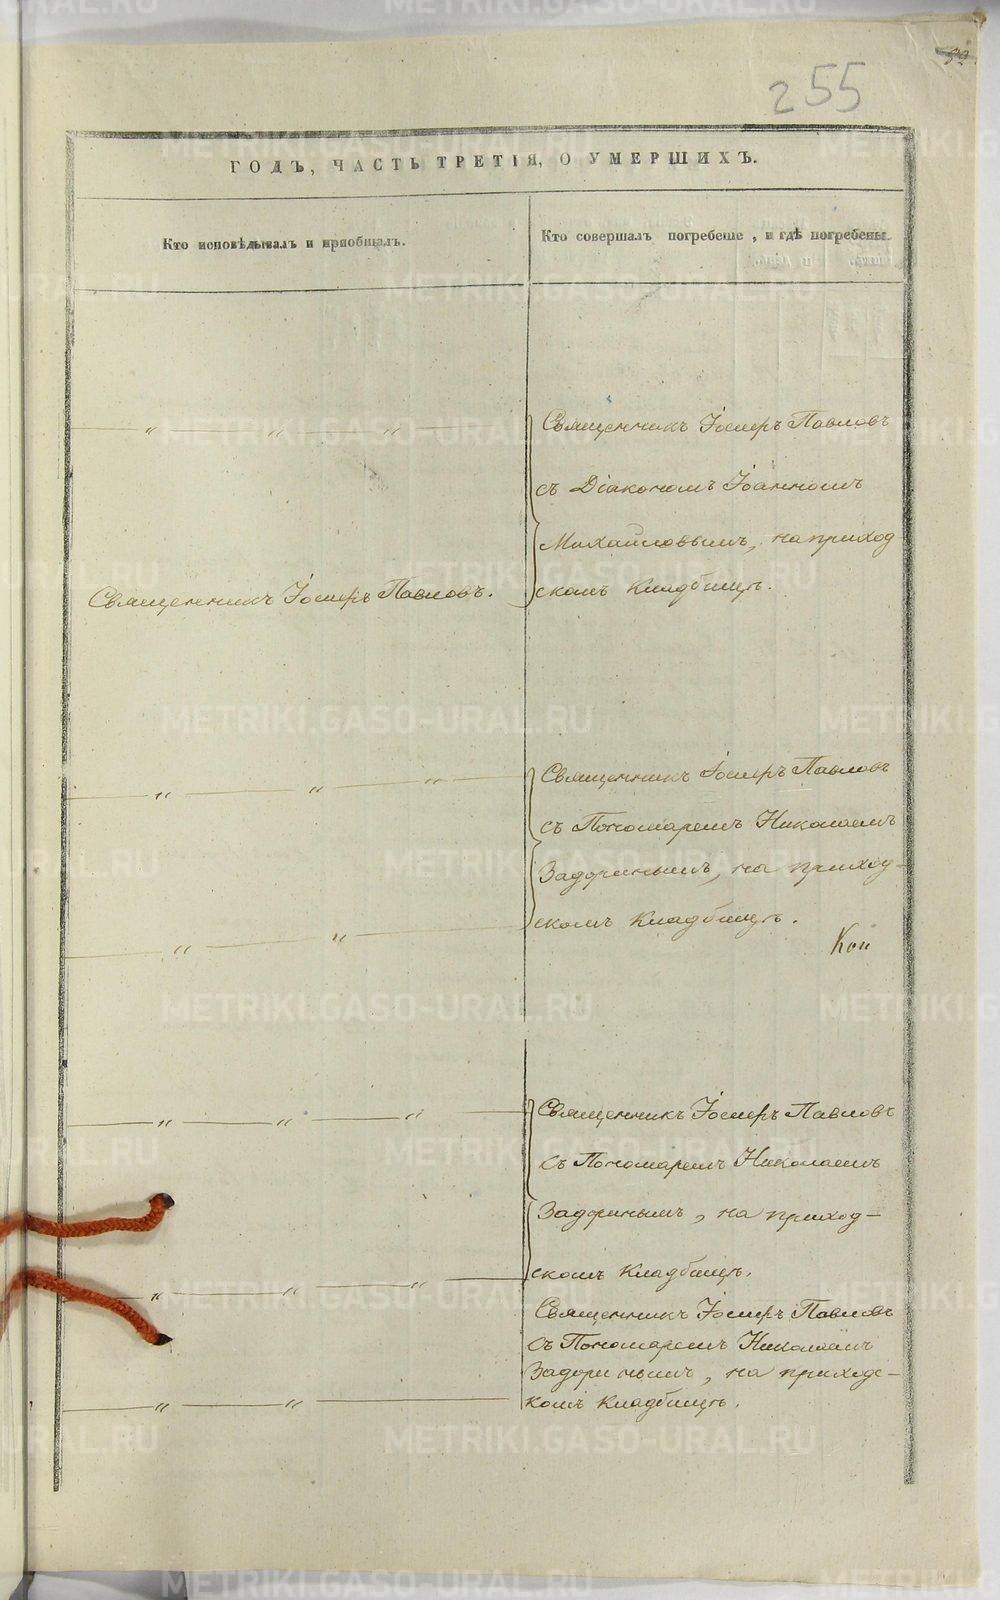 255
ГОДЪ, ЧАСТЬ ТРЕТІЯ, О УМЕРШИХЪ.
Кто исповѣдывалъ и пріобщалъ.
Кто совершалъ погребеніе, и гдѣ погребены.
Священникъ Іосифъ Павловъ
съ Діакономъ Іоанномъ
Михайловымъ, на приход-
скомъ кладбищѣ.
Священникъ Іосифъ Павловъ.
Священникъ Іосифъ Павловъ
съ Пономаремъ Николаемъ
Задоринымъ, на приход-
скомъ кладбищѣ.
Кои
Священникъ Іосифъ Павловъ
съ Пономаремъ Николаемъ
Задоринымъ, на приход-
скомъ кладбищѣ.
Священникъ Іосифъ Павловъ
съ Пономаремъ Николаемъ
Задоринымъ, на приходс-
комъ кладбищѣ.
METRIKI.GASO-URAL.RU